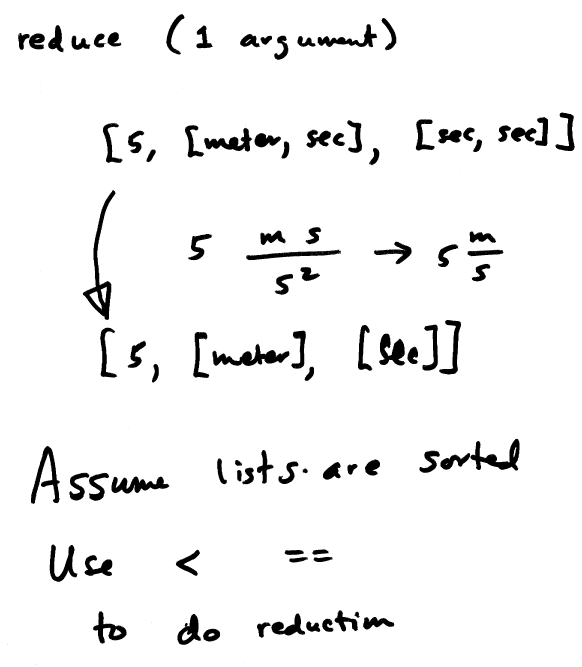 reduce (1 argument)
[5, [meter, sec], [sec, sec]]
5 m s / s² → 5 m / s
[5, [meter], [sec]]
Assume lists are sorted
Use < ==
to do reduction